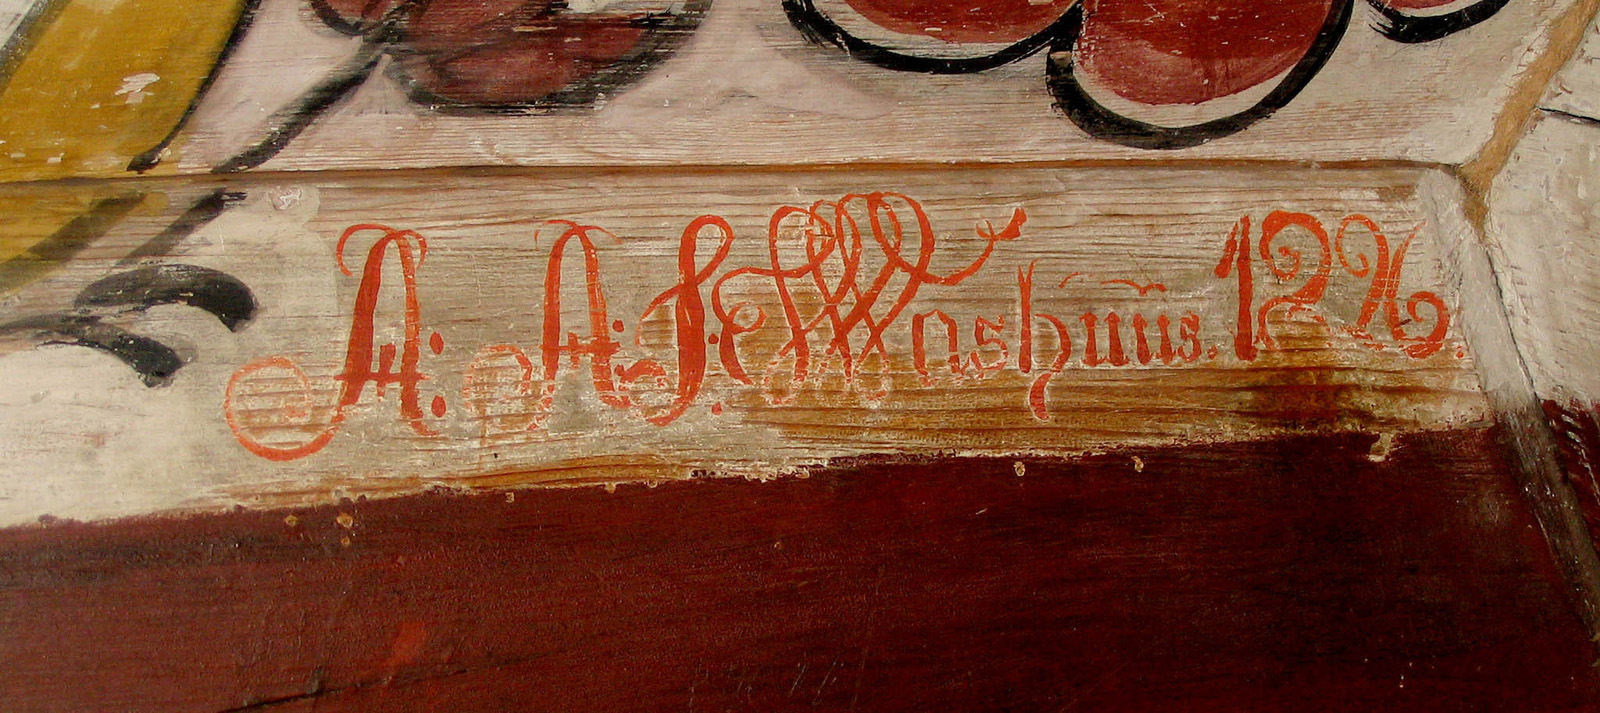 A: A: S: Washuus. 122.